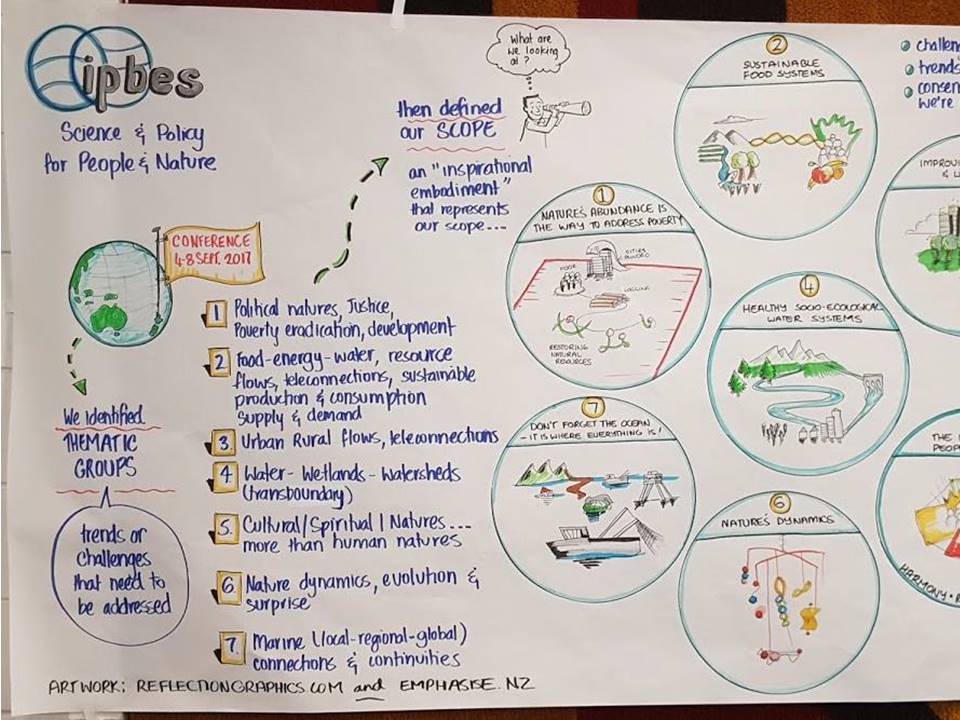 ipbes
Science & Policy
for People & Nature
CONFERENCE
4-8 SEPT, 2017
We identified
THEMATIC
GROUPS
trends or
challenges
that need to
be addressed
1 Political natures, Justice,
Poverty eradication, development
2 Food-energy-water, resource
flows, teleconnections, sustainable
production & consumption
supply & demand
3 Urban Rural flows, teleconnections
4. Water-Wetlands-Watersheds
(transboundary)
5. Cultural/Spiritual | Natures...
more than human natures
6 Nature dynamics, evolution &
surprise
7. Marine (local-regional-global)
connections & continuities
ARTWORK: REFLECTIONGRAPHICS.COM and EMPHASISE.NZ
then defined
our SCOPE
an "inspirational
embodiment"
that represents
our scope...
What are
we looking
at?
1
NATURE'S ABUNDANCE IS
THE WAY TO ADDRESS POVERTY
CITIES
FLOODED
POOR
LOGGING
RESTORING
NATURAL
RESOURCES
2
SUSTAINABLE
FOOD SYSTEMS
4
HEALTHY SOCIO-ECOLOGICAL
WATER SYSTEMS
7
DON'T FORGET THE OCEAN
- IT IS WHERE EVERYTHING IS!
6
NATURE'S DYNAMICS
challen
trends
consen
we're
IMPROVI
& L
THE
PEOP
HARMONY • R